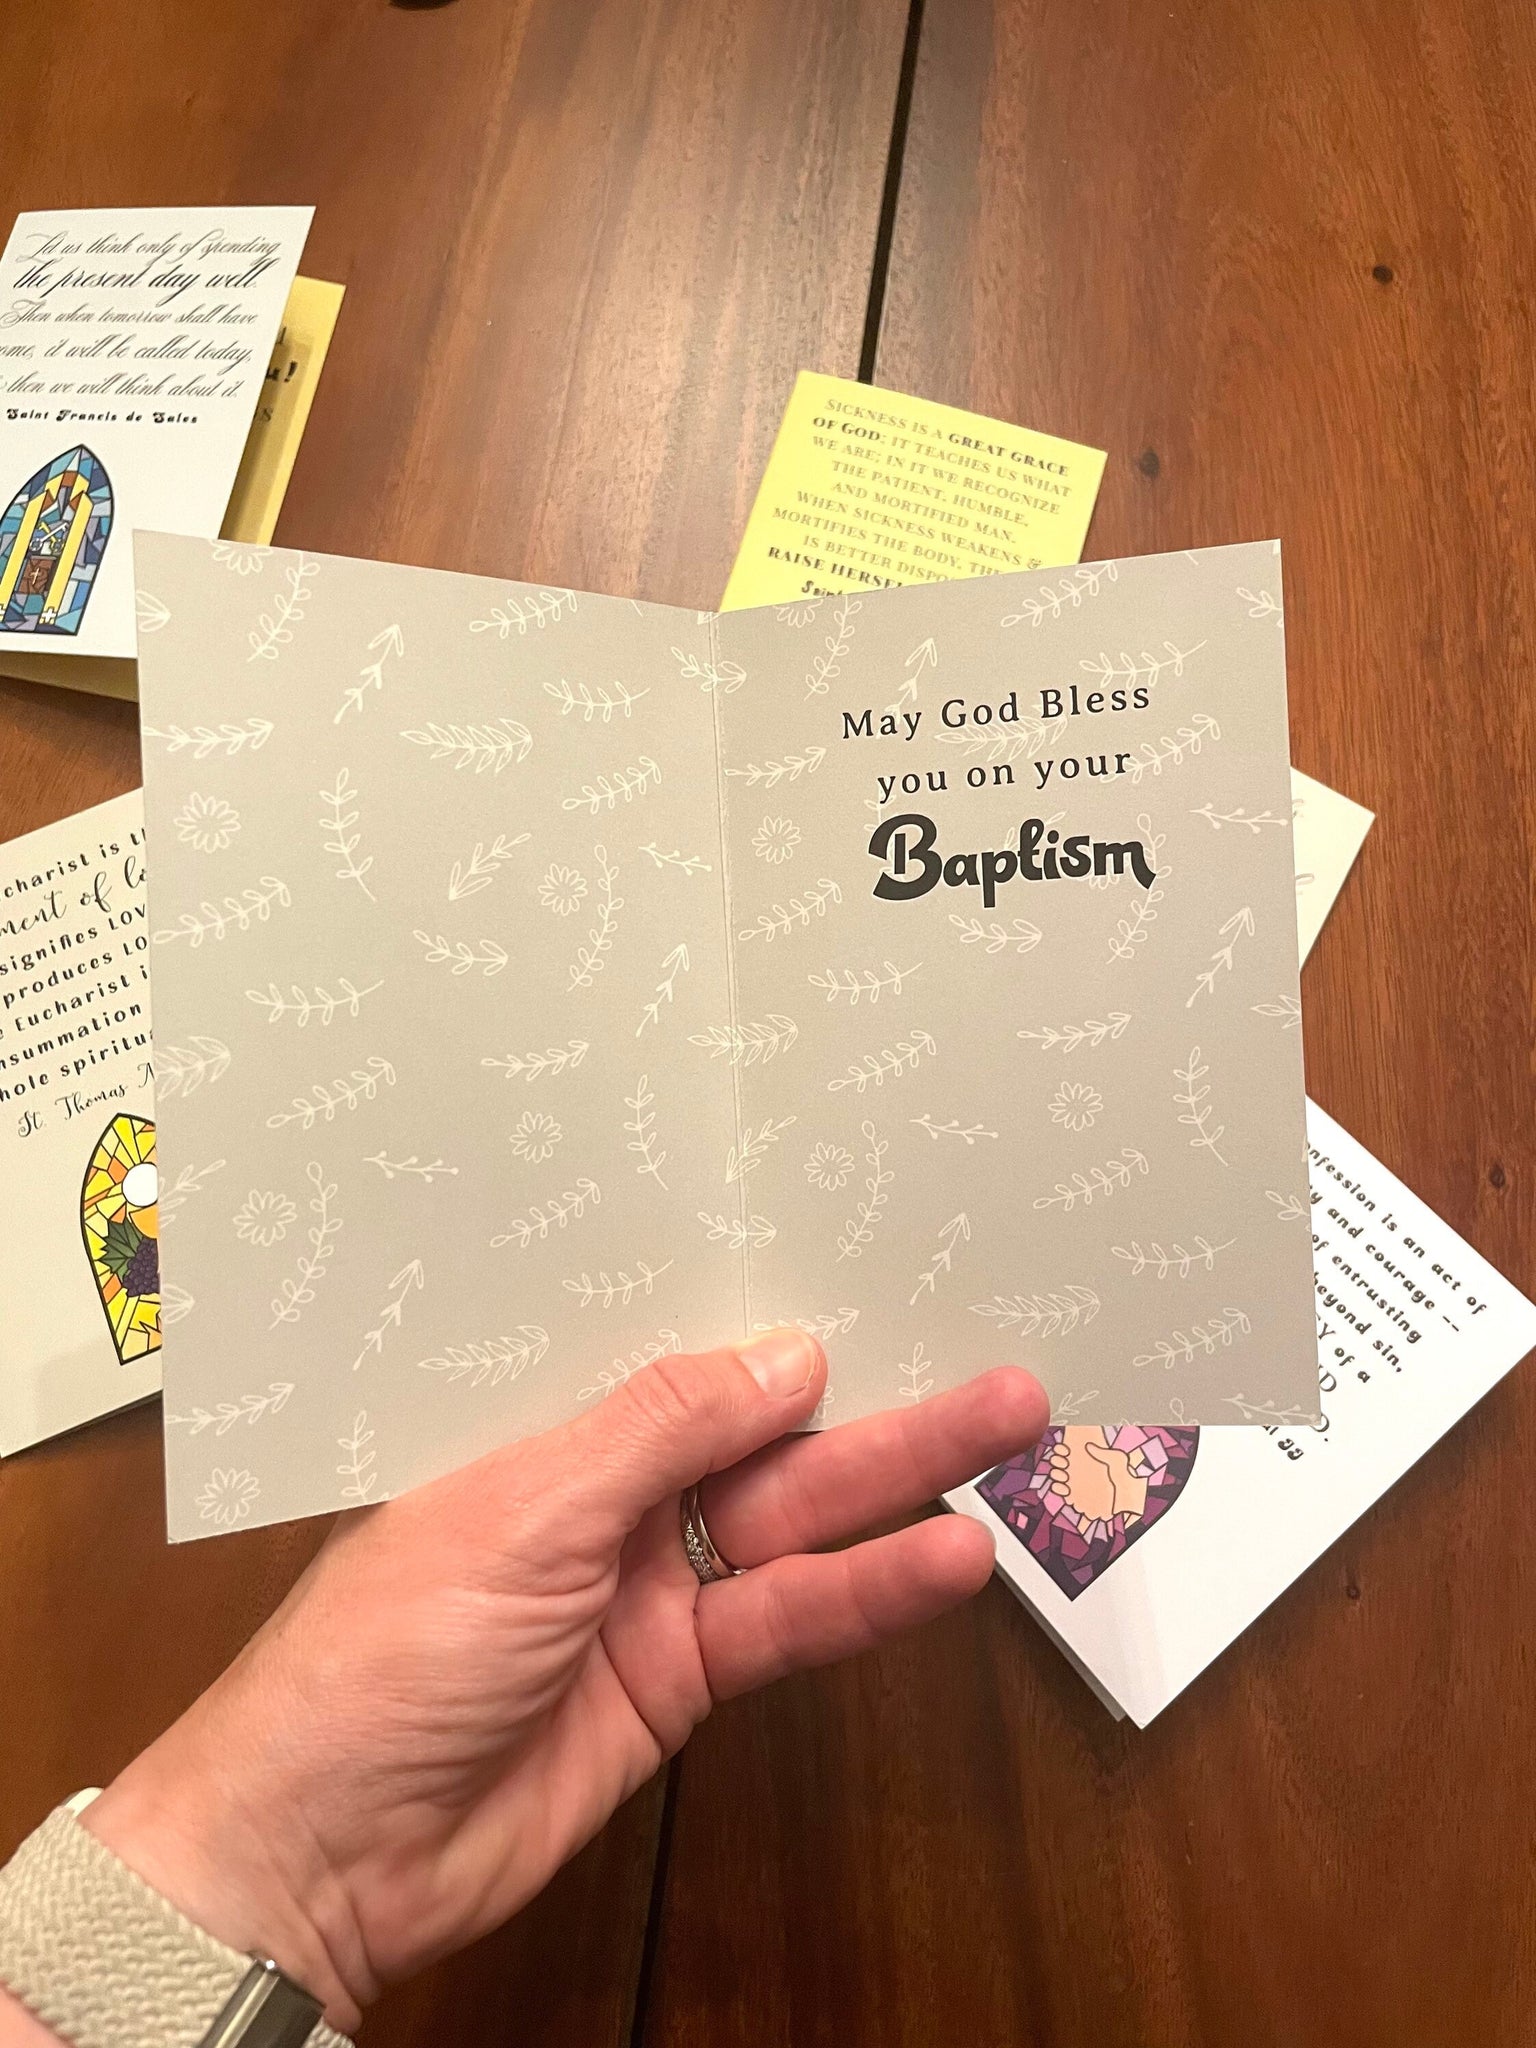 Let us think only of spending
the present day well.
Then when tomorrow shall have
ome, it will be called today,
then we will think about it.
Saint Francis de Sales
SICKNESS IS A GREAT GRACE
OF GOD; IT TEACHES US WHAT
WE ARE; IN IT WE RECOGNIZE
THE PATIENT, HUMBLE,
AND MORTIFIED MAN.
WHEN SICKNESS WEAKENS &
MORTIFIES THE BODY, THE
IS BETTER DISPO
RAISE HERSEL
Saint
May God Bless
you on your
Baptism
charist is t
ment of lo
signifies LOV
produces LO
e Eucharist i
nsummation
hole spiritu
St. Thomas A
nfession is an act of
y and courage --
of entrusting
beyond sin,
Y of a
D.
II